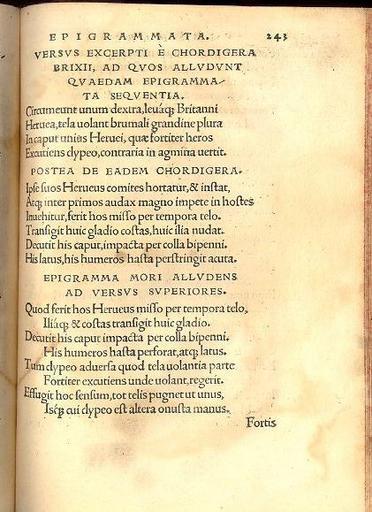 EPIGRAMMATA. 243
VERSVS EXCERPTI È CHORDIGERA
BRIXII, AD QVOS ALLVDVNT
QVAEDAM EPIGRAMMA-
TA SEQVENTIA.
Circumeunt unum dextra, leuáq; Britanni
Heruea, tela uolant brumali grandine plura
In caput unius Heruei, quæ fortiter heros
Excutiens clypeo, contraria in agmina uertit.
POSTEA DE EADEM CHORDIGERA.
Ipse suos Herueus comites hortatur, & instat,
Atq; inter primos audax magno impete in hostes
Inuehitur, ferit hos misso per tempora telo.
Transigit huic gladio costas, huic ilia nudat.
Decutit his caput, impacta per colla bipenni.
His latus, his humeros hasta perstringit acuta.
EPIGRAMMA MORI ALLVDENS
AD VERSVS SVPERIORES.
Quod ferit hos Herueus misso per tempora telo,
Iliáq; & costas transigit huic gladio.
Decutit his caput impacta per colla bipenni.
His humeros hasta perforat, atq; latus.
Tum clypeo aduersa quod tela uolantia parte
Fortiter excutiens unde uolant, regerit.
Effugit hoc sensum, tot telis pugnet ut unus,
Isq; cui clypeo est altera onusta manus.
Fortis